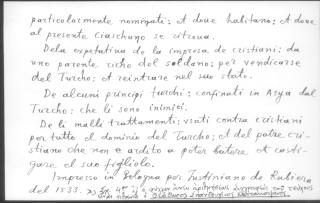 particolarmente nominati: et doue habitano: et doue
al presente ciaschuno se ritroua.
Dela expetatiua de la impresa de cristiani: da
uno parente richo del soldano; per vendicarse
del Turcho; et reintrare nel suo stato.
De alcuni principi turchi: confinati in Asya dal
Turcho; che li sono inimici.
De li malli trattamenti: vsati contra cristiani
per tutto el dominio del Turcho; et del patre cri-
stiano che non e ardito a poter batere et casti-
gare el suo figliolo.
Impresso in Bologna per Justiniano de Rubiera
del 1533.